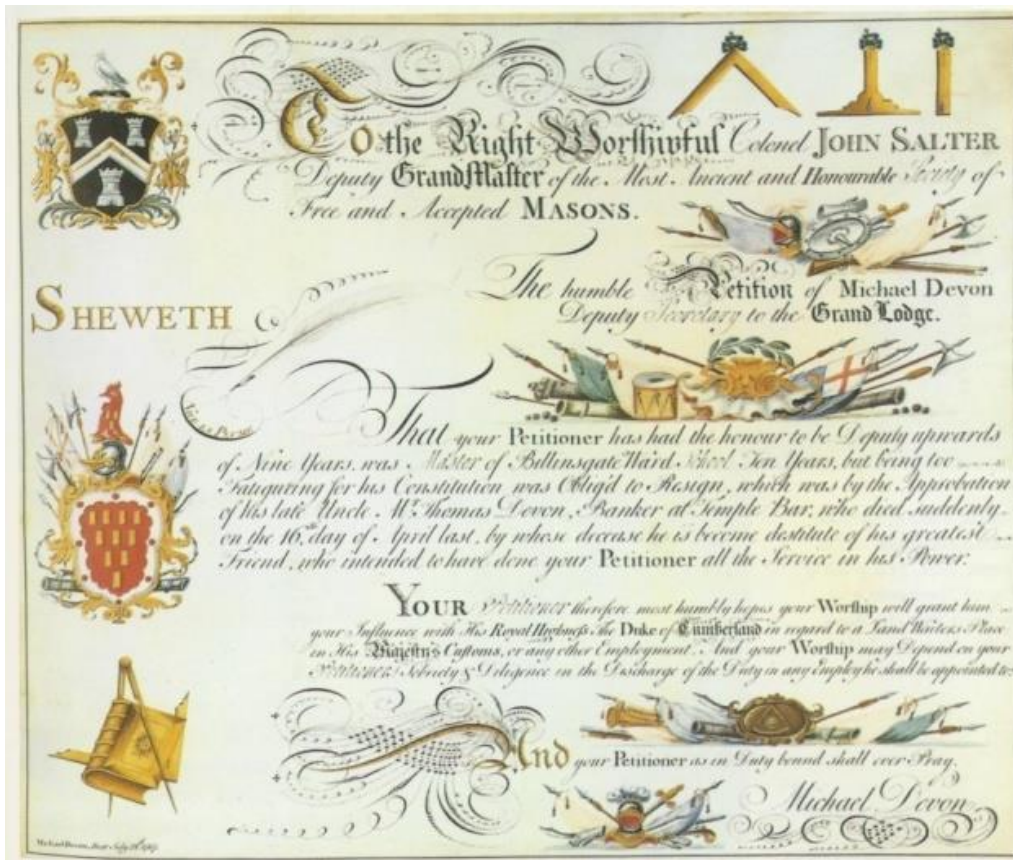 To the Right Worshipful Colonel JOHN SALTER
Deputy Grand Master of the Most Ancient and Honourable Society of
Free and Accepted MASONS.
SHEWETH
The humble Petition of Michael Devon
Deputy Secretary to the Grand Lodge.
That your Petitioner has had the honour to be Deputy upwards
of Nine Years, was Master of Billinsgate Ward School Ten Years, but being too
Fatiguring for his Constitution was Oblig'd to Resign, which was by the Approbation
of his late Uncle Mr Thomas Devon, Banker at Temple Bar, who died suddenly
on the 16th day of April last, by whose decease he is become destitute of his greatest
Friend, who intended to have done your Petitioner all the Service in his Power:
YOUR Petitioner therefore most humbly hopes your Worship will grant him
your Influence with His Royal Highness the Duke of Cumberland in regard to a Land Waiters Place
in His Majesty's Customs, or any other Employment. And your Worship may Depend on your
Petitioner's Sobriety & Diligence in the Discharge of the Duty in any Employ he shall be appointed to:
And your Petitioner as in Duty bound shall ever Pray.
Michael Devon
Michael Devon, July